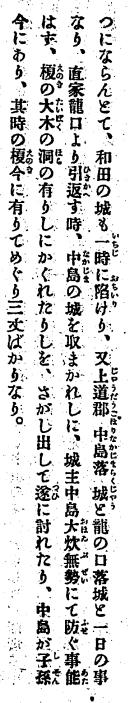 つにならんとて、和田の城も一時に陷けり、又上道郡中島落城と龍の口落城と一日の事
なり、直家龍口より引返す時、中島の城を取まかれしに、城主中島大炊無勢にて防ぐ事能
はず、榎の大木の洞の有りしにかくれたりしを、さがし出して遂に討れたり、中島が子孫
今にあり、其時の榎今に有りてめぐり三丈ばかりなり。